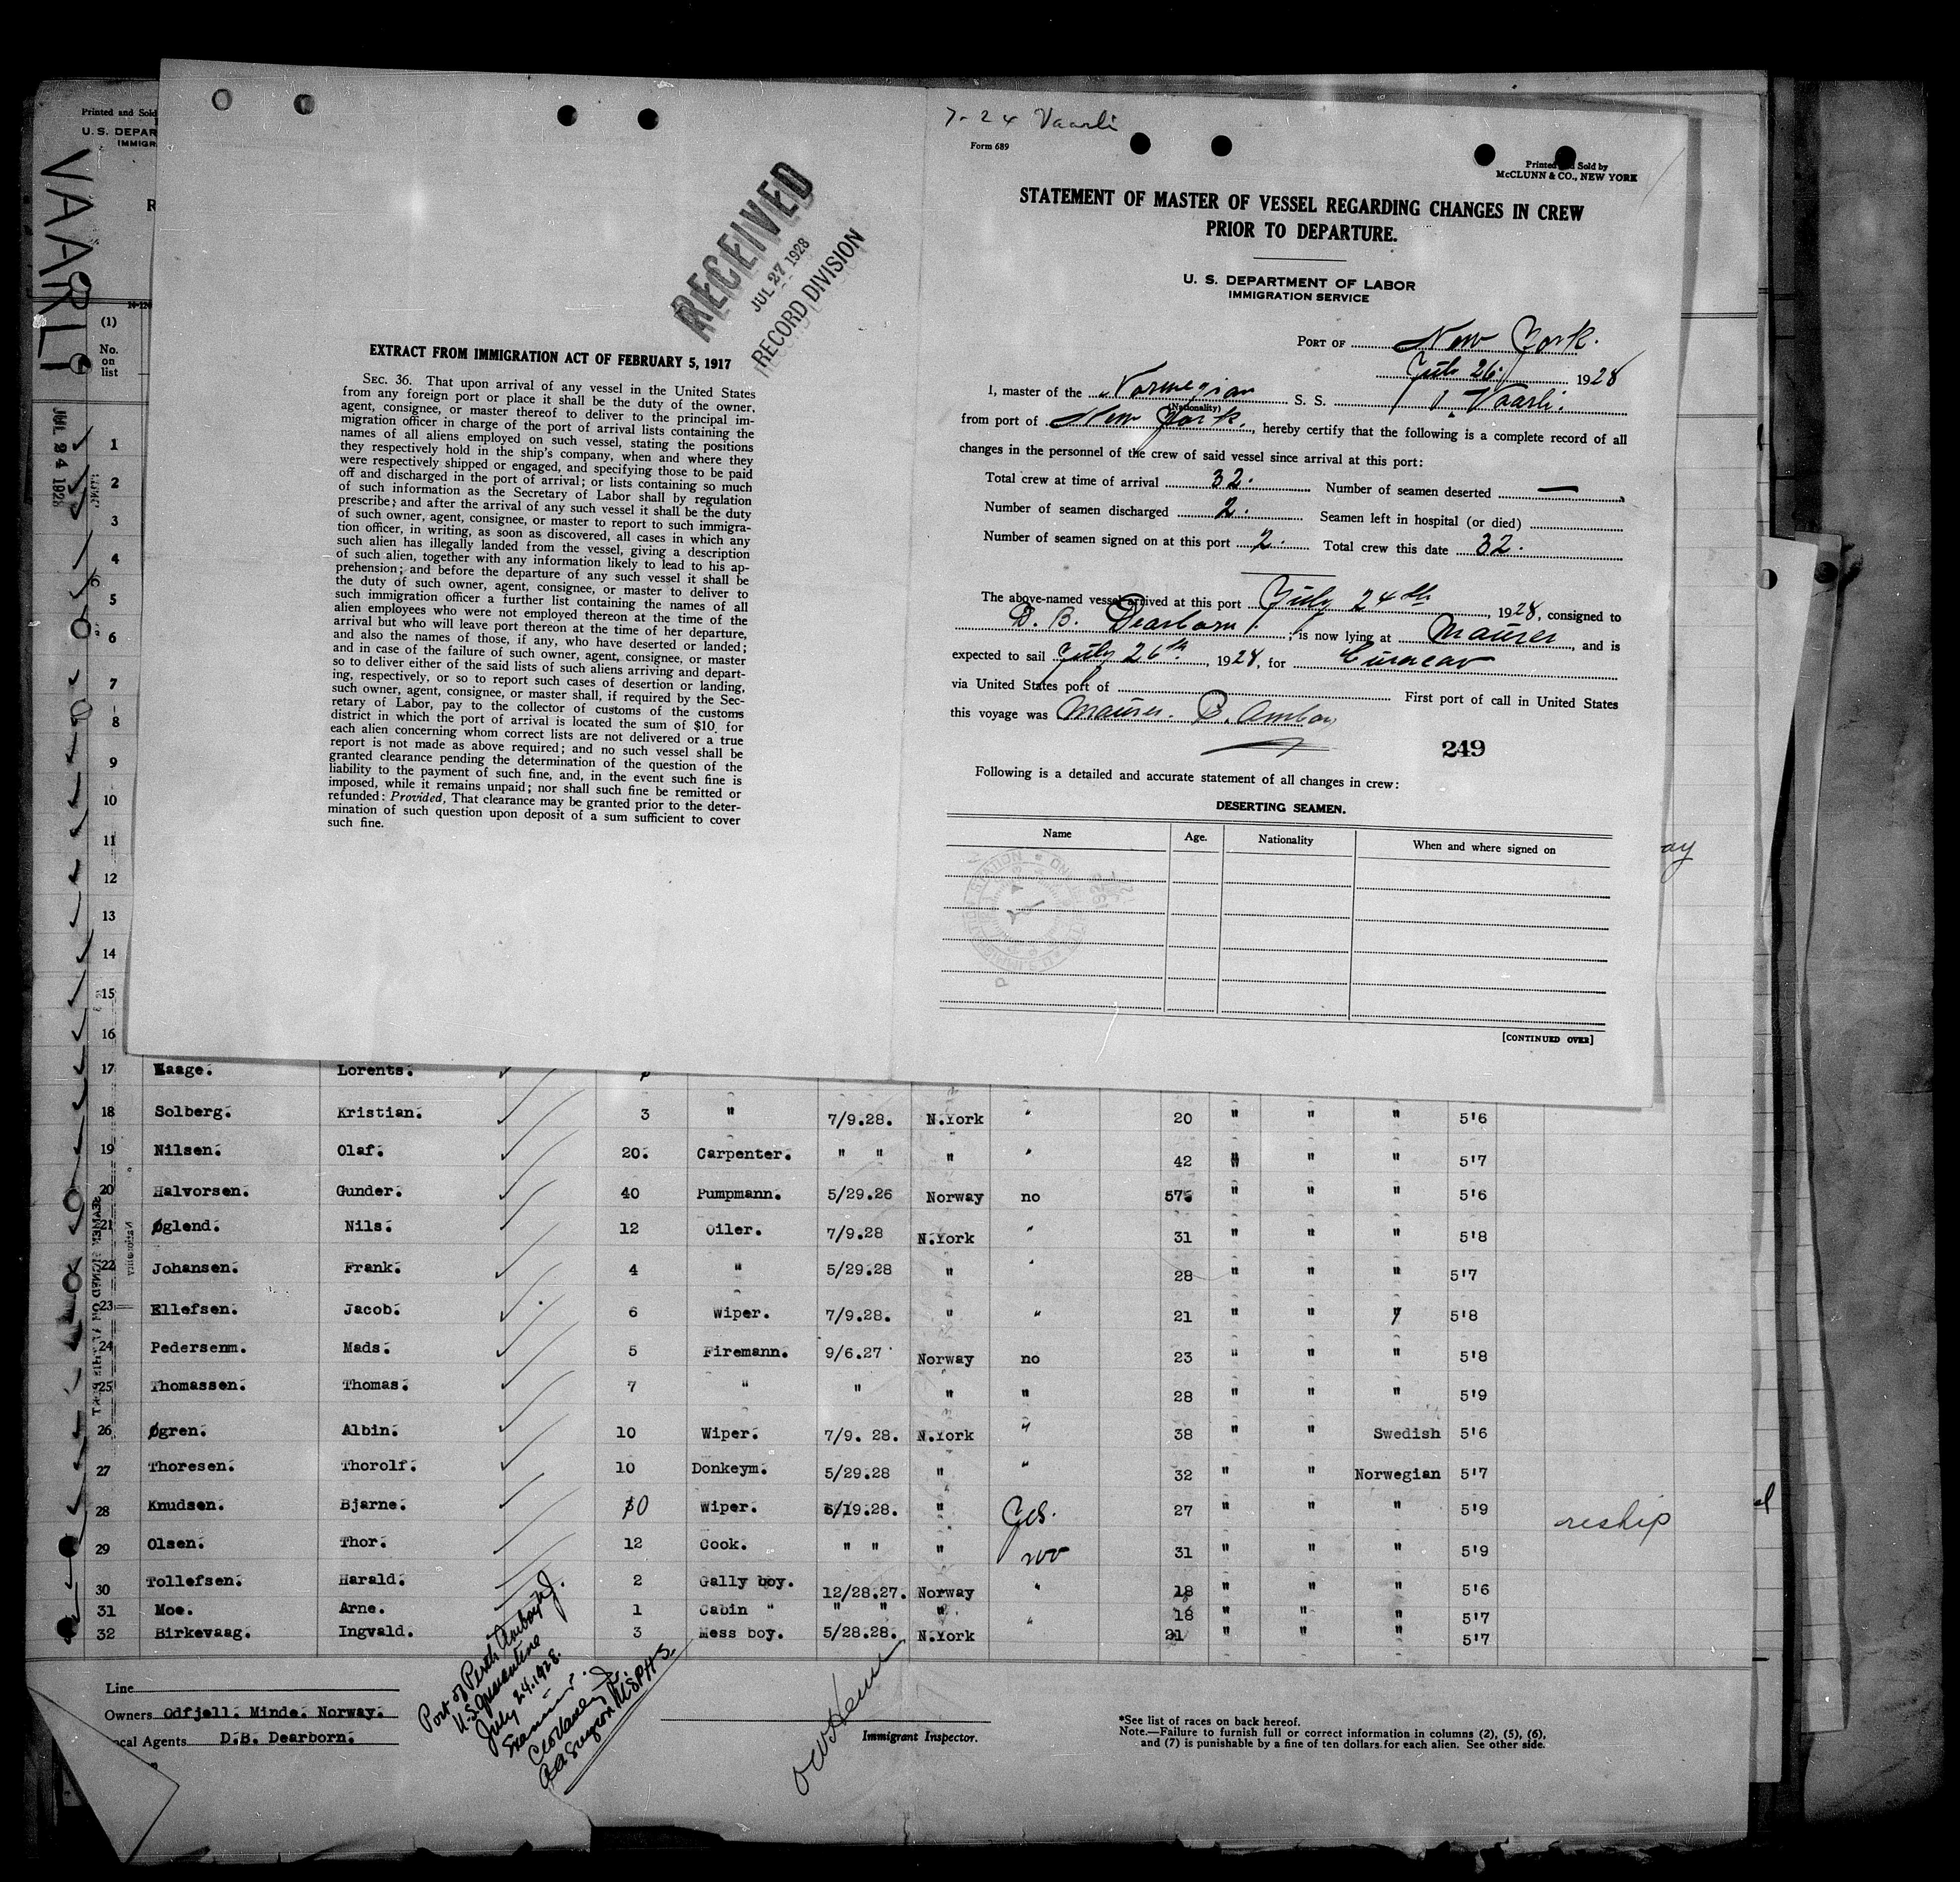 Printed and Sold
U. S. DEPAR
IMMIGR
VAARLI
R
(1)
No.
on
list
JUL 24 1928
1
2
3
4
5
6
7
8
9
10
11
12
13
14
15
16
RECEIVED
JUL 27 1928
RECORD DIVISION
EXTRACT FROM IMMIGRATION ACT OF FEBRUARY 5, 1917
SEC. 36. That upon arrival of any vessel in the United States
from any foreign port or place it shall be the duty of the owner,
agent, consignee, or master thereof to deliver to the principal im-
migration officer in charge of the port of arrival lists containing the
names of all aliens employed on such vessel, stating the positions
they respectively hold in the ship's company, when and where they
were respectively shipped or engaged, and specifying those to be paid
off and discharged in the port of arrival; or lists containing so much
of such information as the Secretary of Labor shall by regulation
prescribe; and after the arrival of any such vessel it shall be the duty
of such owner, agent, consignee, or master to report to such immigra-
tion officer, in writing, as soon as discovered, all cases in which any
such alien has illegally landed from the vessel, giving a description
of such alien, together with any information likely to lead to his ap-
prehension; and before the departure of any such vessel it shall be
the duty of such owner, agent, consignee, or master to deliver to
such immigration officer a further list containing the names of all
alien employees who were not employed thereon at the time of the
arrival but who will leave port thereon at the time of her departure,
and also the names of those, if any, who have deserted or landed;
and in case of the failure of such owner, agent, consignee, or master
so to deliver either of the said lists of such aliens arriving and depart-
ing, respectively, or so to report such cases of desertion or landing,
such owner, agent, consignee, or master shall, if required by the Sec-
retary of Labor, pay to the collector of customs of the customs
district in which the port of arrival is located the sum of $10. for
each alien concerning whom correct lists are not delivered or a true
report is not made as above required; and no such vessel shall be
granted clearance pending the determination of the question of the
liability to the payment of such fine, and, in the event such fine is
imposed, while it remains unpaid; nor shall such fine be remitted or
refunded: Provided, That clearance may be granted prior to the deter-
mination of such question upon deposit of a sum sufficient to cover
such fine.
7-24 Vaarli
Form 689
Printed and Sold by
McCLUNN & CO., NEW YORK
STATEMENT OF MASTER OF VESSEL REGARDING CHANGES IN CREW
PRIOR TO DEPARTURE.
U. S. DEPARTMENT OF LABOR
IMMIGRATION SERVICE
PORT OF New York.
July 26. 1928
I, master of the Norwegian S. S. Vaarli.
(Nationality)
from port of New York., hereby certify that the following is a complete record of all
changes in the personnel of the crew of said vessel since arrival at this port:
Total crew at time of arrival 32. Number of seamen deserted —
Number of seamen discharged 2. Seamen left in hospital (or died)
Number of seamen signed on at this port 2. Total crew this date 32.
The above-named vessel arrived at this port July 24th, 1928, consigned to
D. B. Dearborn; is now lying at Maurer, and is
expected to sail July 26th, 1928, for Curacao
via United States port of First port of call in United States
this voyage was Maurer. P. Amboy
249
Following is a detailed and accurate statement of all changes in crew:
DESERTING SEAMEN.
Name Age. Nationality When and where signed on
[CONTINUED OVER]
ay
17 Haage. Lorents.
18 Solberg. Kristian. 3 " 7/9.28. N.York " 20 " " " 5'6
19 Nilsen. Olaf. 20. Carpenter. " " " " 42 " " " 5'7
20 Halvorsen. Gunder. 40 Pumpmann. 5/29.26 Norway no 57. " " " 5'6
21 Øglend. Nils. 12 Oiler. 7/9.28 N.York " 31 " " " 5'8
22 Johansen. Frank. 4 " 5/29.28 " " 28 " " " 5'7
23 Ellefsen. Jacob. 6 Wiper. 7/9.28. " " 21 " " " 5'8
24 Pedersenm. Mads. 5 Firemann. 9/6.27 Norway no 23 " " " 5'8
25 Thomassen. Thomas. 7 " " " " 28 " " " 5'9
26 Øgren. Albin. 10 Wiper. 7/9. 28. N.York " 38 " " Swedish 5'6
27 Thoresen. Thorolf. 10 Donkeym. 5/29.28 " " 32 " " Norwegian 5'7
28 Knudsen. Bjarne. 10 Wiper. 6/19.28. " Yes. 27 " " " 5'9 reship
29 Olsen. Thor. 12 Cook. " " " no 31 " " " 5'9
30 Tollefsen. Harald. 2 Gally boy. 12/28.27. Norway " 18 " " " 5'6
31 Moe. Arne. 1 Cabin " " " " " 18 " " " 5'7
32 Birkevaag. Ingvald. 3 Mess boy. 5/28.28. N.York 21 " " " 5'7
Line
Owners Odfjell. Minde. Norway.
Local Agents D.B. Dearborn.
Port of Perth Amboy N.J.
U.S. Quarantine
July 24. 1928.
AA Surgeon U.S.P.H.S.
Immigrant Inspector.
*See list of races on back hereof.
Note.—Failure to furnish full or correct information in columns (2), (5), (6),
and (7) is punishable by a fine of ten dollars for each alien. See other side.